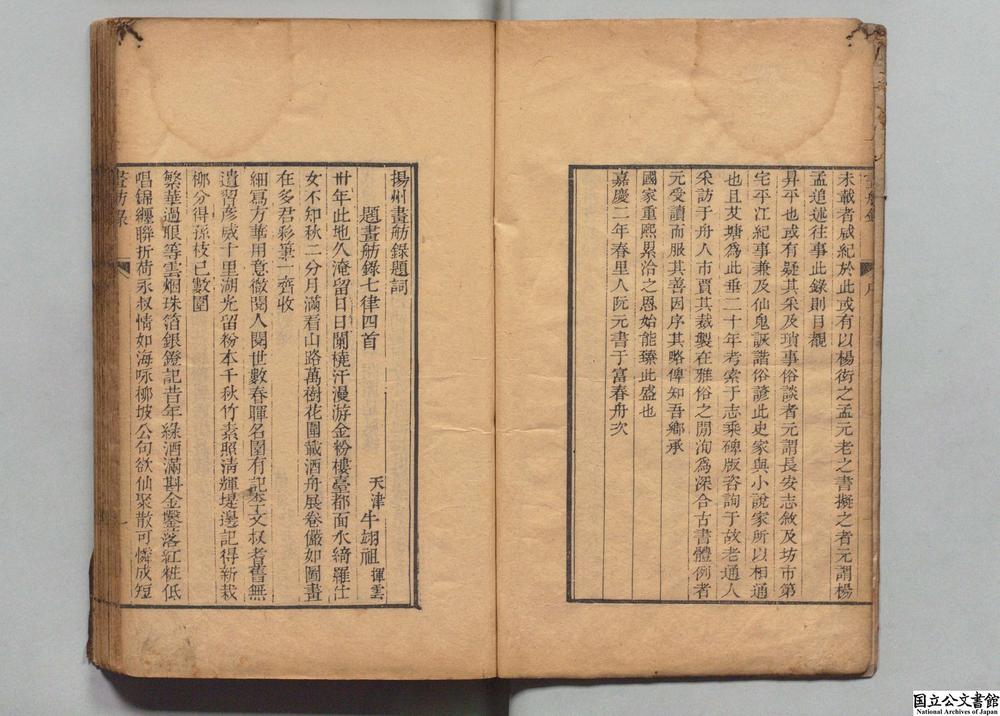 未載者咸紀於此或有以楊衒之孟元老之書擬之者元謂楊
孟追述往事此錄則目覩
昇平也或有疑其采及瑣事俗談者元謂長安志敘及坊市第
宅平江紀事兼及仙鬼詼諧俗諺此史家與小說家所以相通
也且艾塘爲此垂二十年考索于志乘碑版咨詢于故老通人
采訪于舟人市賈其裁製在雅俗之間洵爲深合古書體例者
元受讀而服其善因序其略俾知吾鄉承
國家重熙累洽之恩始能臻此盛也
嘉慶二年春里人阮元書于富春舟次
揚州畫舫錄題詞
題畫舫錄七律四首
天津牛翊祖揮雲
卅年此地久淹留日日蘭橈汗漫游金粉樓臺都面水綺羅仕
女不知秋二分月滿看山路萬樹花圍載酒舟展卷儼如圖畫
在多君彩筆一齊收
細寫方華用意微閱人閱世數春暉名園有記李文叔耆舊無
遺習彥威十里湖光留粉本千秋竹素照清輝堤邊記得新栽
柳分得孫枝已數圍
繁華過眼等雲烟珠箔銀鐙記昔年綠酒滿斟金鑿落紅粧低
唱錦纏聯折荷永叔情如海咏柳坡公句欲仙聚散可憐成短
畫舫錄
一
国立公文書館
National Archives of Japan